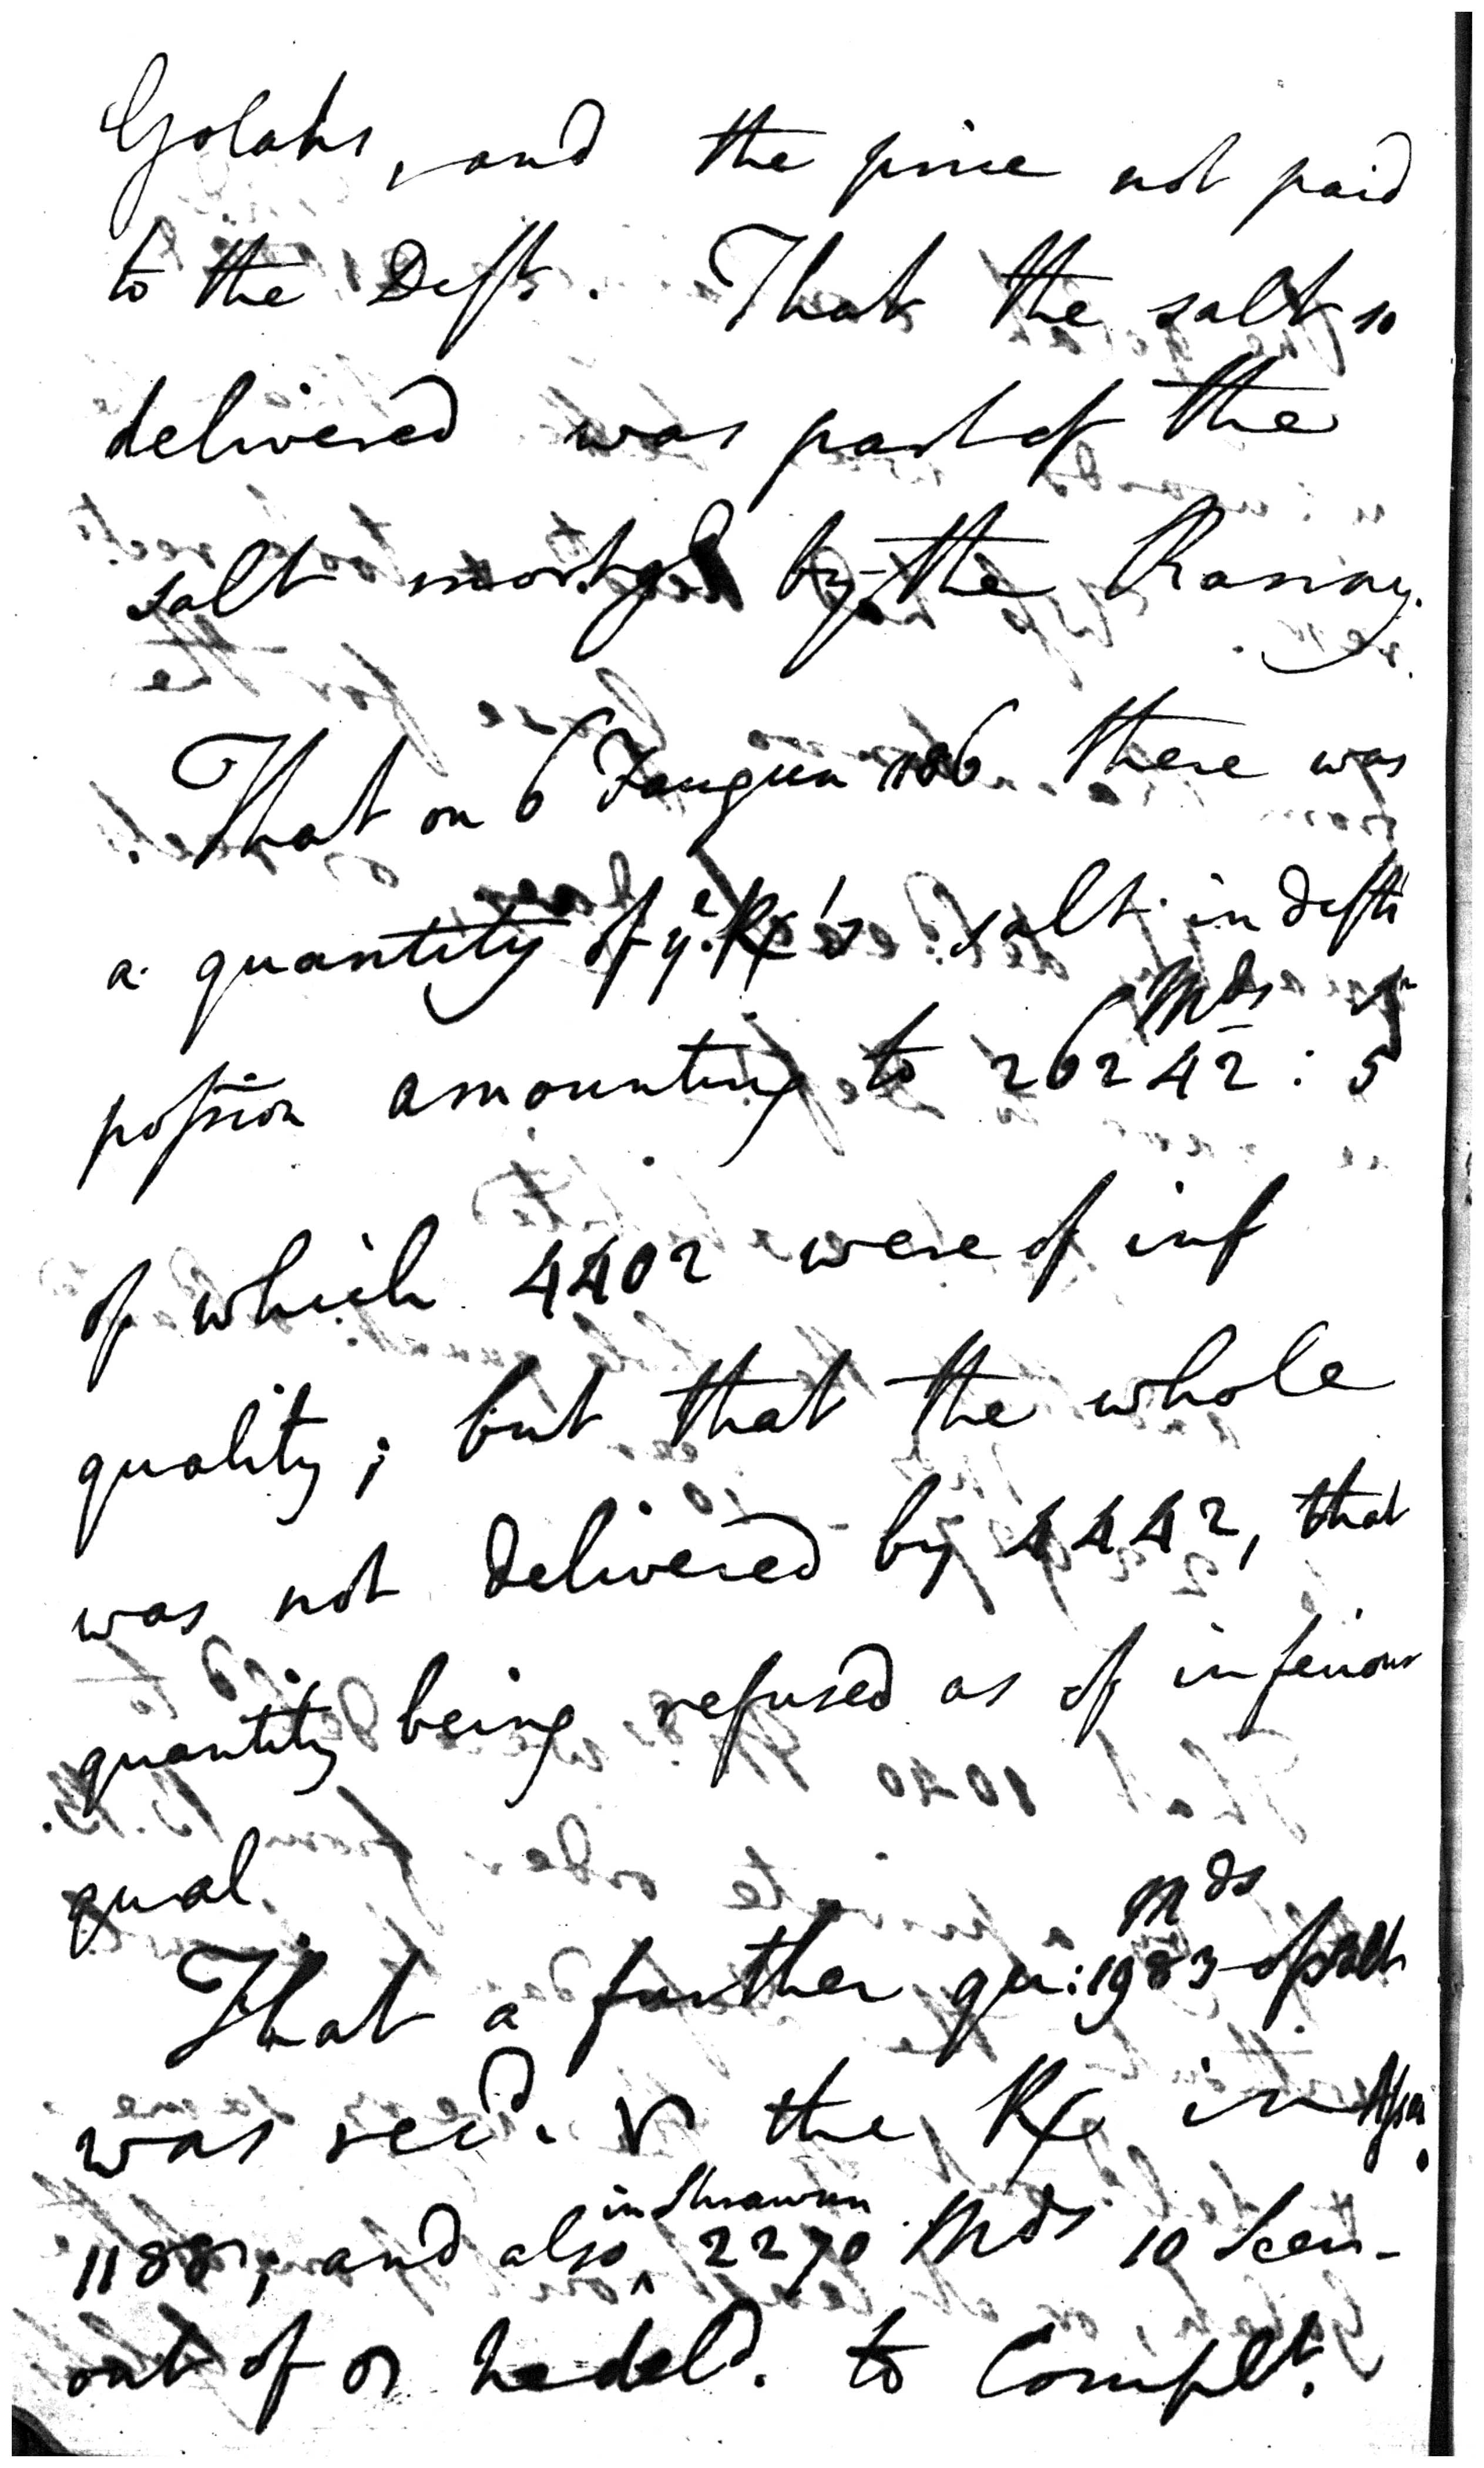 Golahs, and the price not paid
to the Defts. That the salt so
delivered was part of the
salt mortgd by the Ranny.
That on 6 Faugun 1186 there was
a quantity of ye. Rx's salt in defts
possion amounting to 26242 Mds : 5
of which 4402 were of inf
quality; but that the whole
was not delivered by 4442, that
quantity being refused as of inferiour
qual
That a further qu: 1983 Mds of salt
was recd. the Rx in
1188, and also in Shrawun 2270 Mds 10 Seers
out of he deld. to Complt.